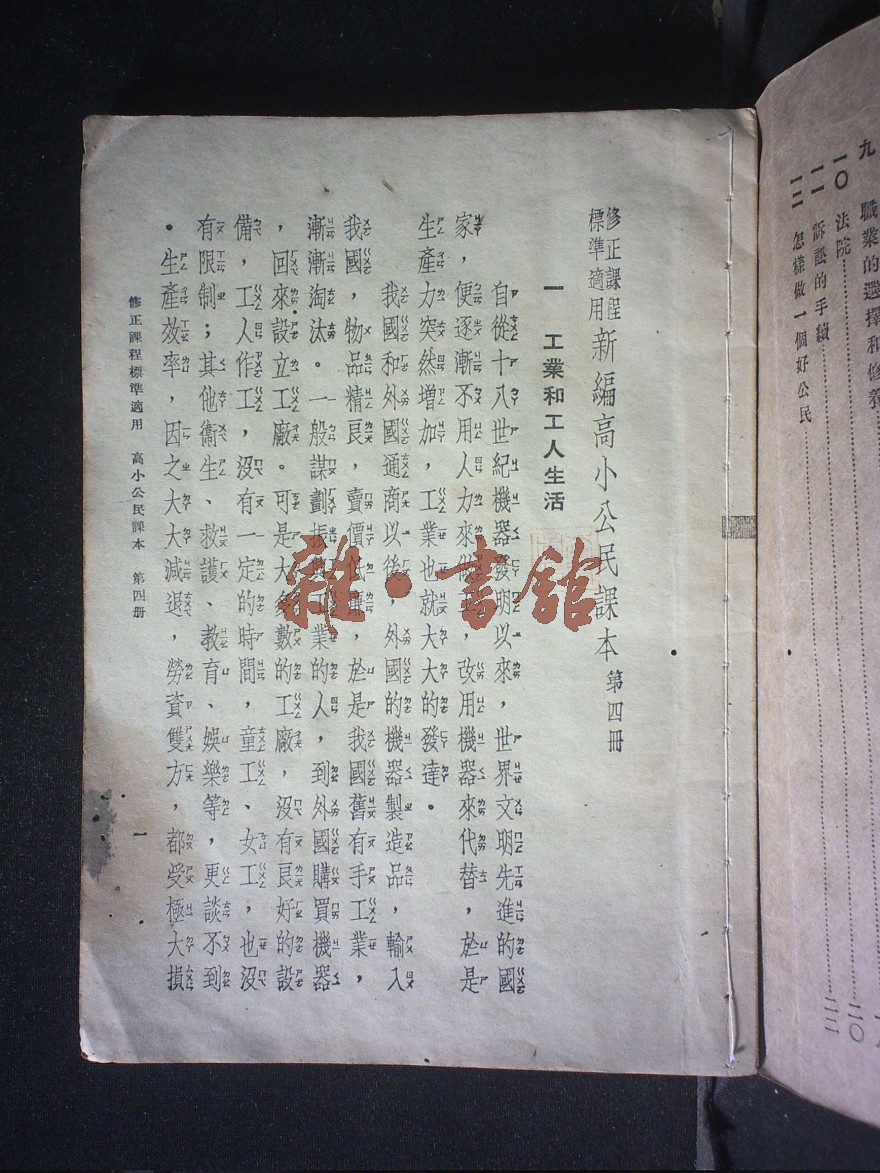 九　職業的選擇和修養
一〇　法院
一一　訴訟的手續……二〇
一二　怎樣做一個好公民……二二
修正課程標準適用 新編高小公民課本 第四冊
一　工業和工人生活
自從十八世紀機器發明以來，世界文明先進的國
家，便逐漸不用人力來做，改用機器來代替，於是
生產力突然增加，工業也就大大的發達。
我國和外國通商以後，外國的機器製造品，輸入
我國，物品精良，賣價低廉，於是我國舊有手工業，
漸漸淘汰。一般謀劃振興工業的人，到外國購買機器
，回來設立工廠。可是大多數的工廠，沒有良好的設
備，工人作工，沒有一定的時間，童工、女工，也沒
有限制；其他衞生、救護、教育、娛樂等，更談不到
。生產效率，因之大大減退，勞資雙方，都受極大損
修正課程標準適用　高小公民課本　第四冊
一
雜·書館